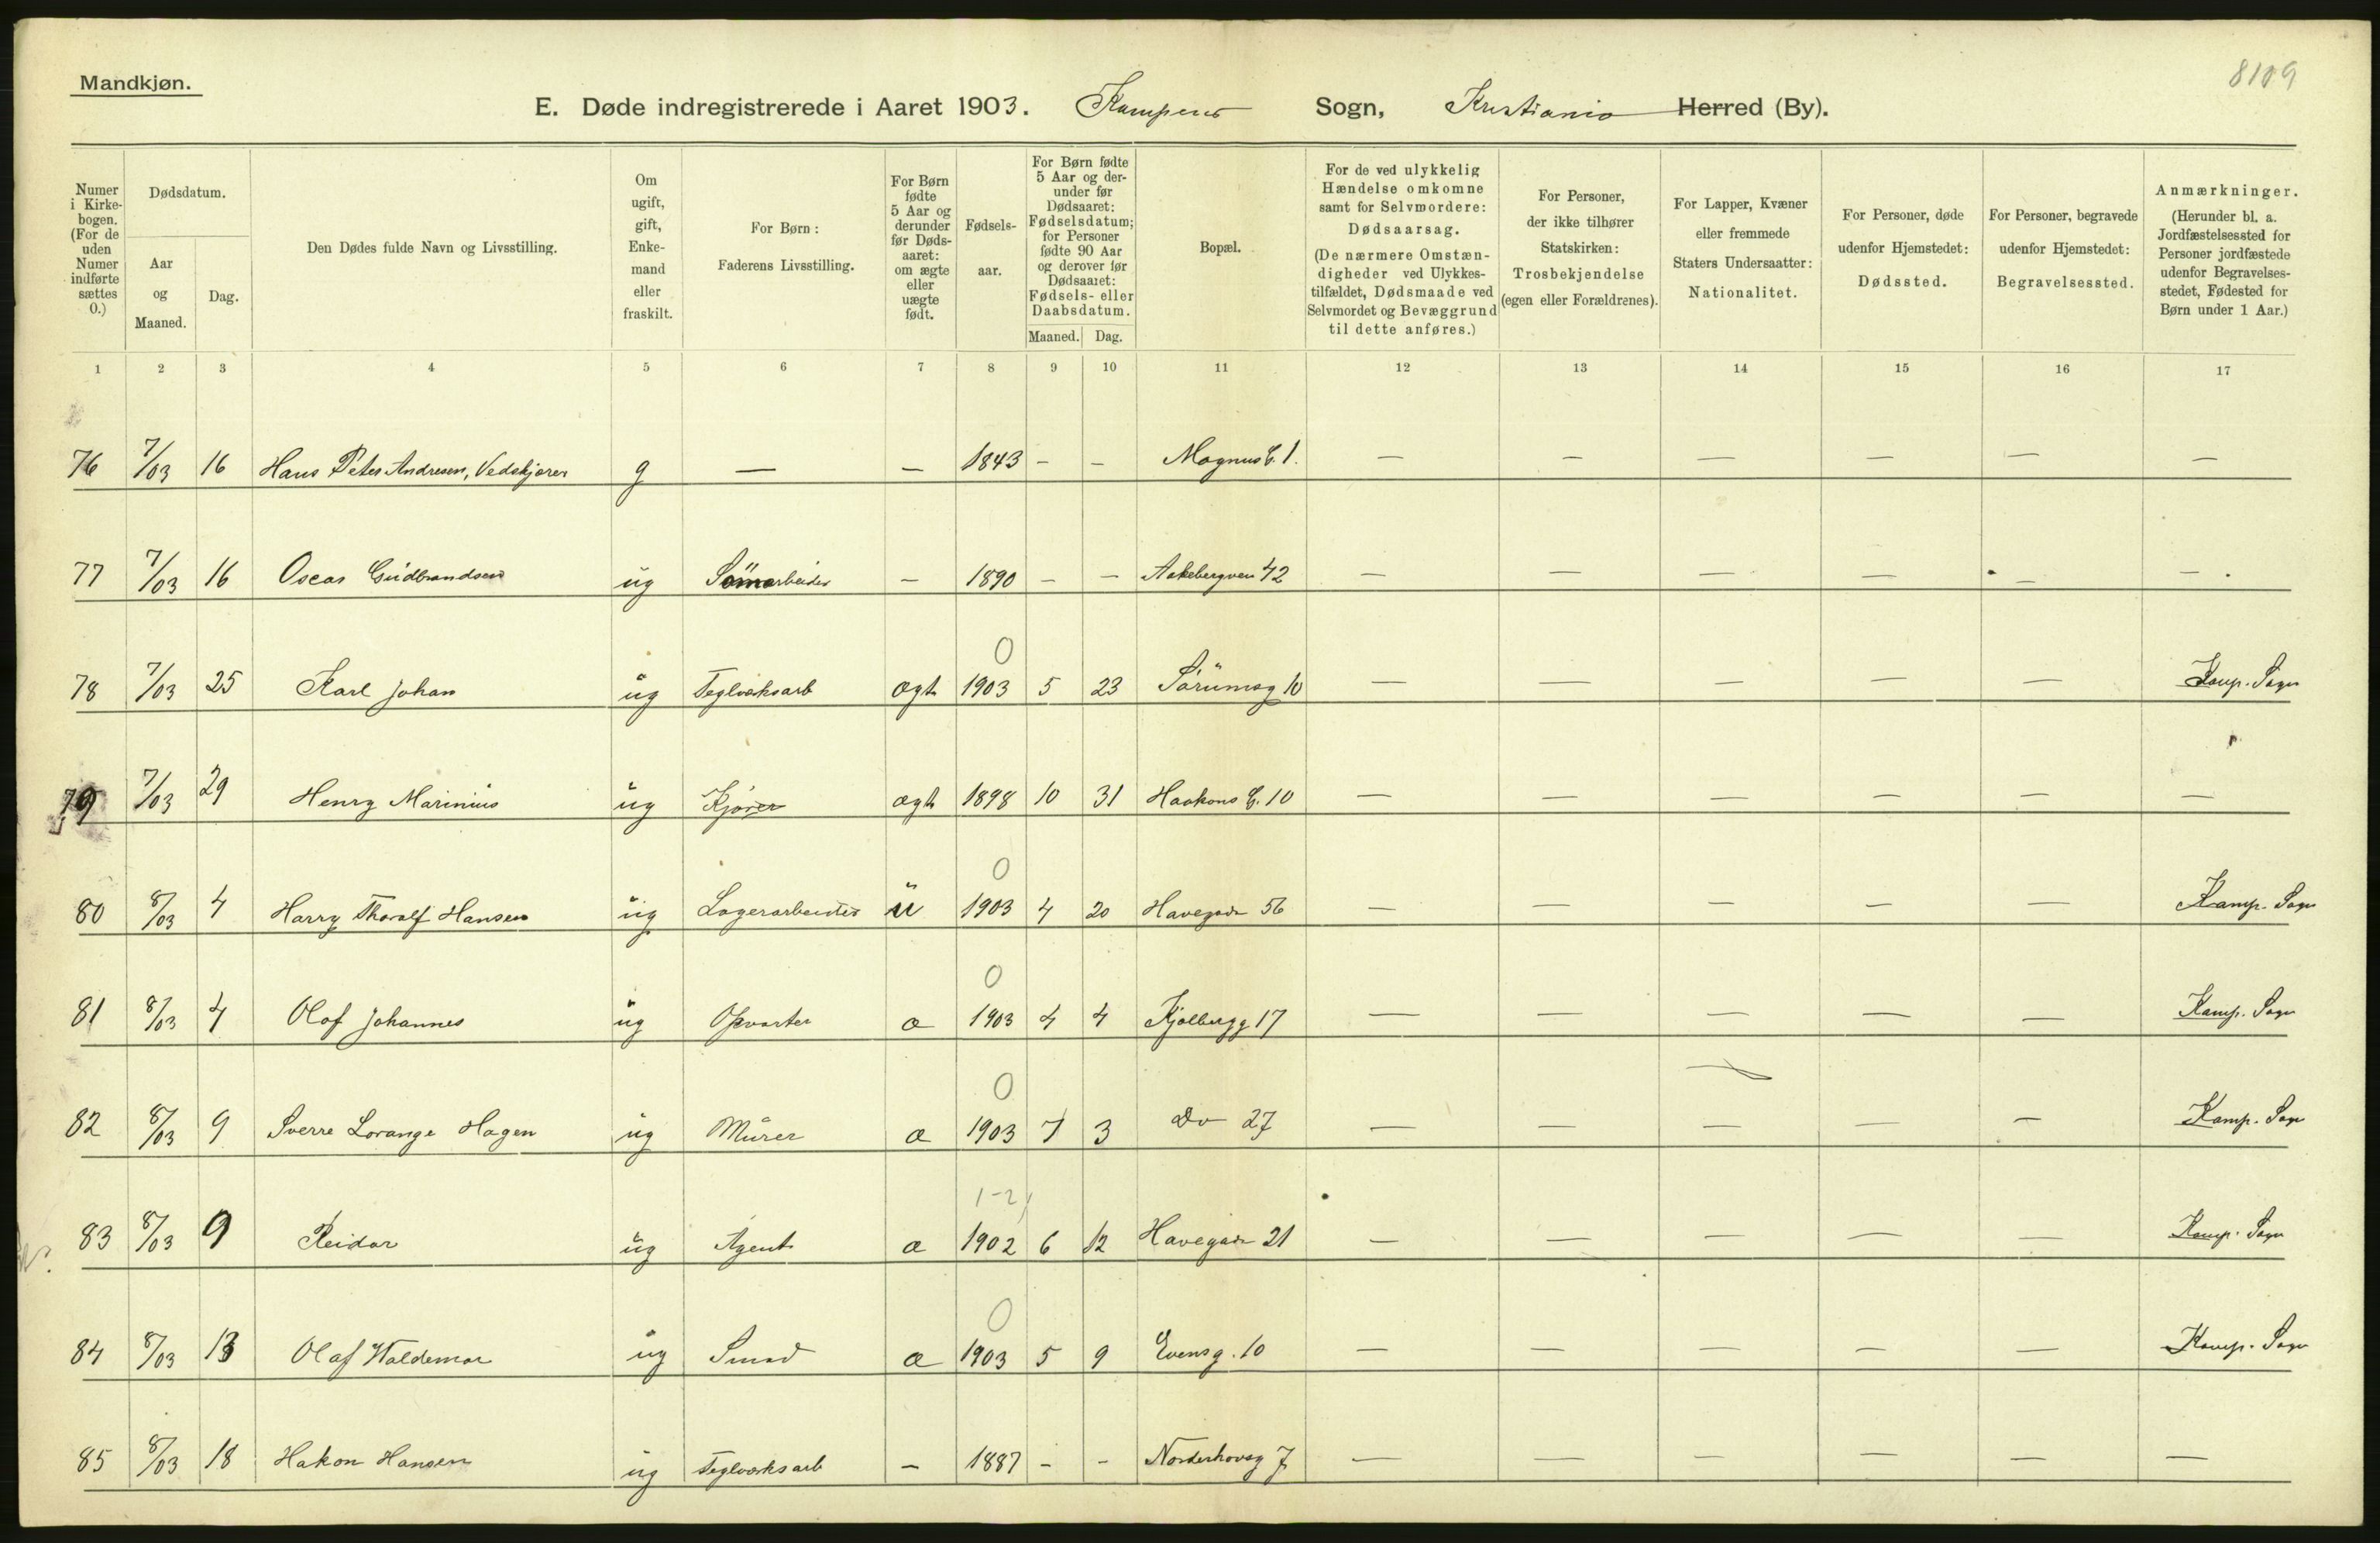 8109
Mandkjøn.
E. Døde indregistrerede i Aaret 1903. Kampens Sogn, Kristiania Herred (By).
Numer i Kirke-bogen. (For de uden Numer indførte sættes 0.)
Dødsdatum.
Aar og Maaned.
Dag.
Den Dødes fulde Navn og Livsstilling.
Om ugift, gift, Enke-mand eller fraskilt.
For Børn: Faderens Livsstilling.
For Børn fødte 5 Aar og derunder før Døds-aaret: om ægte eller uægte født.
Fødsels-aar.
For Børn fødte 5 Aar og der-under før Dødsaaret: Fødselsdatum; for Personer fødte 90 Aar og derover før Dødsaaret: Fødsels- eller Daabsdatum.
Maaned. Dag.
Bopæl.
For de ved ulykkelig Hændelse omkomne samt for Selvmordere: Dødsaarsag. (De nærmere Omstæn-digheder ved Ulykkes-tilfældet, Dødsmaade ved Selvmordet og Bevæggrund til dette anføres.)
For Personer, der ikke tilhører Statskirken: Trosbekjendelse (egen eller Forældrenes).
For Lapper, Kvæner eller fremmede Staters Undersaatter: Nationalitet.
For Personer, døde udenfor Hjemstedet: Dødssted.
For Personer, begravede udenfor Hjemstedet: Begravelsessted.
Anmærkninger. (Herunder bl. a. Jordfæstelsessted for Personer jordfæstede udenfor Begravelses-stedet, Fødested for Børn under 1 Aar.)
1 2 3 4 5 6 7 8 9 10 11 12 13 14 15 16 17
76 7/03 16 Hans Peter Andresen, Vedskjærer g — — 1843 - - Magnus G. 1. — — — — — —
77 7/03 16 Oscar Gudbrandsen ug arbeider — 1890 - - Aakebergvein 42 — — — — — —
0
78 7/03 25 Karl Johan ug Teglværksarb ægte 1903 5 23 Sørumsg 10 — — — — — Kamp. Sogn
79 7/03 29 Henry Marinius ug Kjører ægte 1898 10 31 Haakons G. 10 — — — — — —
0
80 8/03 4 Harry Thoralf Hansen ug Lagerarbeider u 1903 4 20 Havegade 56 — — — — — Kamp. Sogn
0
81 8/03 4 Olaf Johannes ug Opvarter æ 1903 4 4 Kjølbergg 17 — — — — — Kamp. Sogn
0
82 8/03 9 Sverre Lorange Hagen ug Murer æ 1903 7 3 Do 27 — — — — — Kamp. Sogn
1-2
83 8/03 9 Reidar ug Agent æ 1902 6 12 Havegade 21 — — — — — Kamp. Sogn
0
84 8/03 13 Olaf Waldemar ug Smed æ 1903 5 9 Evensg. 10 — — — — — Kamp. Sogn
85 8/03 18 Hakon Hansen ug Teglværksarb — 1887 - - Norderhovsg 7 — — — — — —